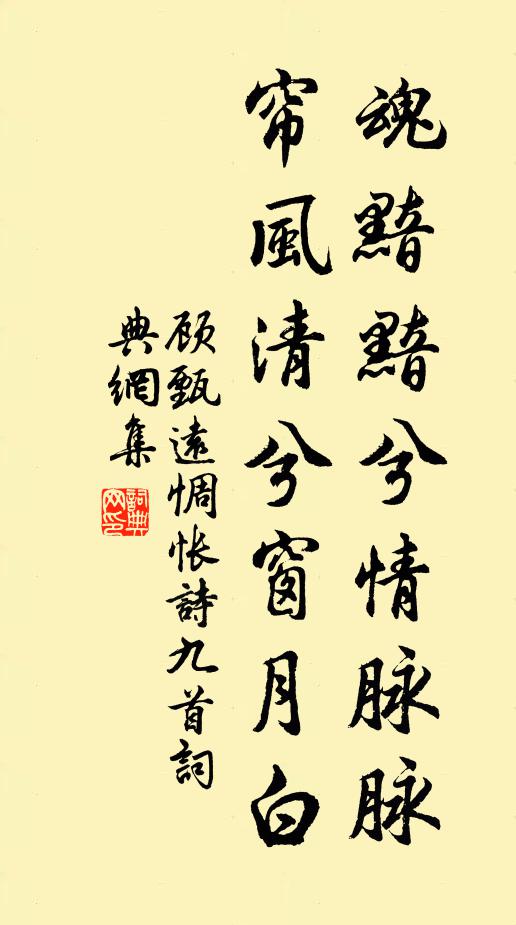 魂黯黯兮情脉脉
帘風清兮窗月白
顾甄遠惆怅詩九首詞
典網集
詞典網印